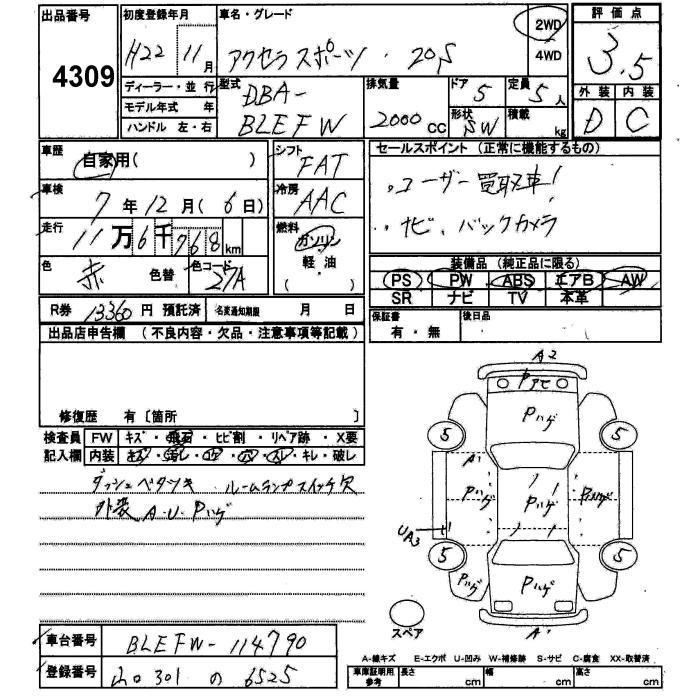 出品番号
4309
初度登録年月
H22 11月
車名・グレード
アクセラスポーツ・20S
2WD
4WD
評価点
3.5
外装 内装
D C
ディーラー・並行
モデル年式 年
ハンドル 左・右
型式
DBA-
BLEFW
排気量
2000cc
ドア 5
定員 5人
形状 SW
積載 kg
車歴
自家用( )
車検
7年12月(6日)
走行
11万6千768km
色
赤
色替
色コード
27A
シフト
FAT
冷房
AAC
燃料
ガソリン
軽油
( )
セールスポイント (正常に機能するもの)
ユーザー買取車!
ナビ、バックカメラ
装備品(純正品に限る)
PS PW ABS エアB AW
SR ナビ TV 本革
保証書
有・無
後日品
R券 13360円 預託済
名変通知期限 月 日
出品店申告欄(不良内容・欠品・注意事項等記載)
修復歴 有〔箇所 〕
検査員
記入欄
FW キズ・飛石・ヒビ割・リペア跡・X要
内装 キズ・汚レ・コゲ・穴・スレ・キレ・破レ
ダッシュベタツキ ルームランプスイッチ欠
外装 A・U・Pハゲ
A2
Pアセ
Pハゲ
5
5
A1
Pハゲ
Pハゲ
Pハゲ
UA3
5
5
Pハゲ
Pハゲ
スペア
A1
車台番号
BLEFW-114790
登録番号
山口 301 の 6525
A-線キズ E-エクボ U-凹み W-補修跡 S-サビ C-腐食 XX-取替済
車庫証明用参考
長さ cm
幅 cm
高さ cm